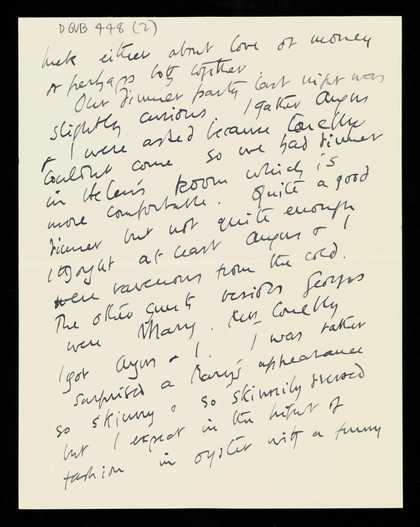 DGVB 448 (2)
luck either about love or money
or perhaps both together
Our dinner party last night was
slightly curious I gather Angus
& I were asked because Conolly
couldn't come so we had dinner
in Helen's room which is
more comfortable. Quite a good
dinner but not quite enough
I thought at least Angus & I
were ravenous from the cold.
The other guests besides
were Mary. Mrs Conolly
I got Angus & I. I was rather
surprised a Mary's appearance
so skinny & so skinnily dressed
but I expect in the height of
fashion in oyster with a funny